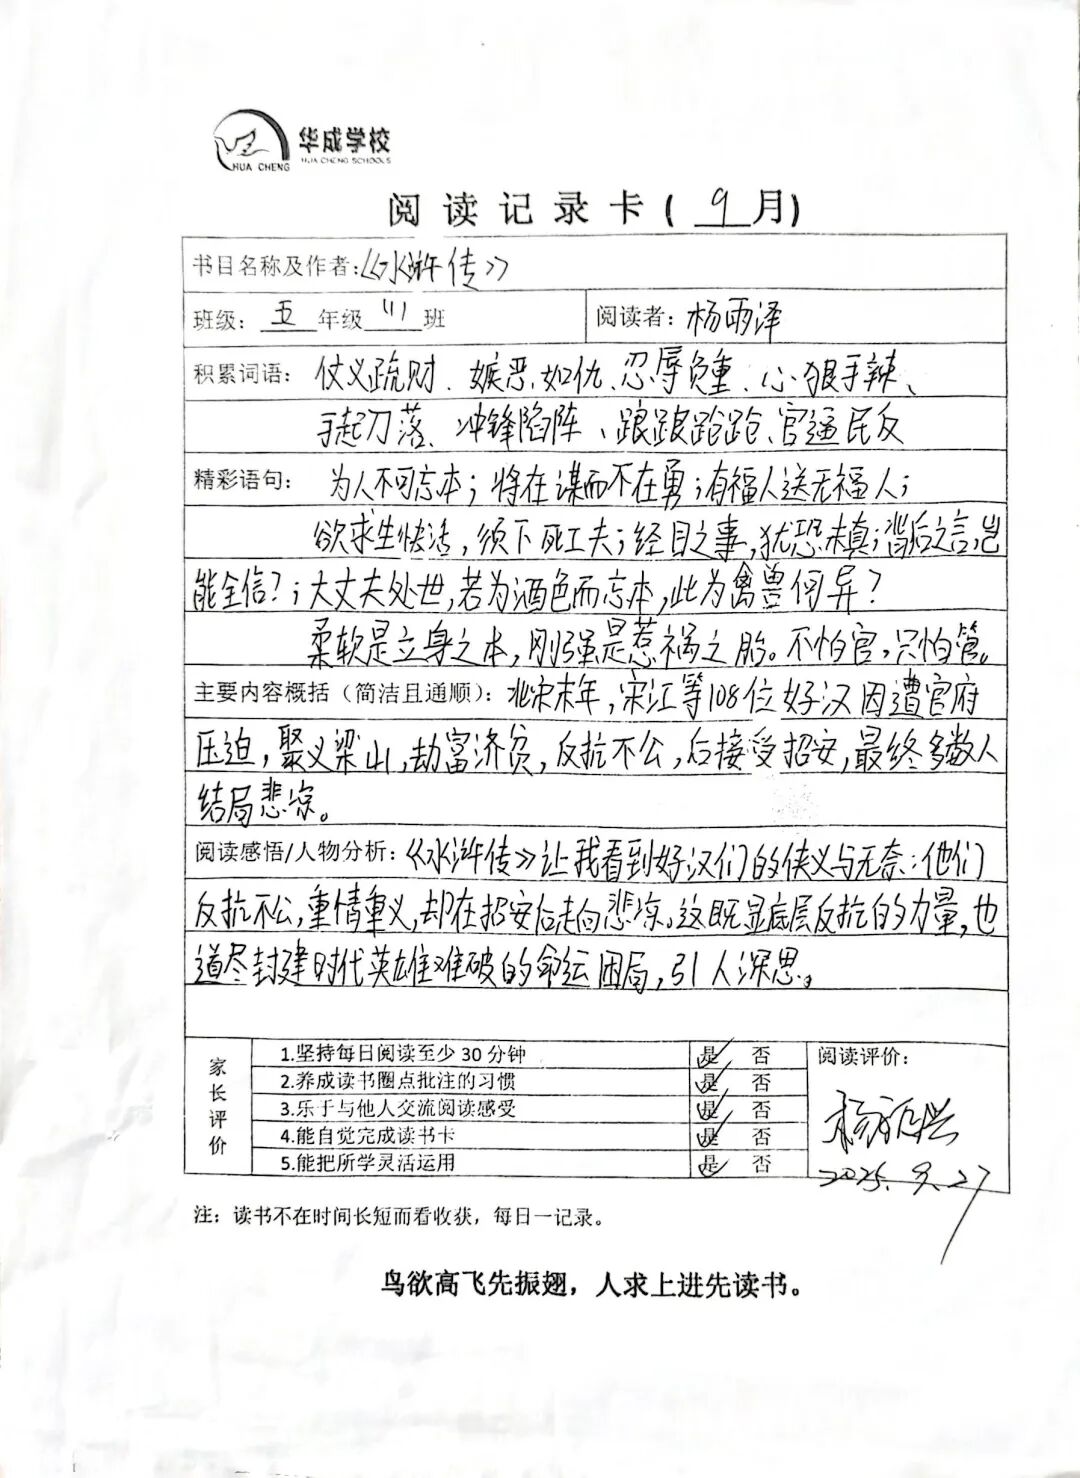 华成学校
HUA CHENG SCHOOLS
HUA CHENG
阅读记录卡（9月）
书目名称及作者：《水浒传》
班级：五年级(1)班 阅读者：杨雨泽
积累词语： 仗义疏财、嫉恶如仇、忍辱负重、心狠手辣、
手起刀落、冲锋陷阵、踉踉跄跄、官逼民反
精彩语句： 为人不可忘本；将在谋而不在勇；有福人送无福人；
欲求生快活，须下死工夫；经目之事，犹恐未真；背后之言，岂
能全信？；大丈夫处世，若为酒色而忘本，此为禽兽何异？
柔软是立身之本，刚强是惹祸之胎。不怕官，只怕管。
主要内容概括（简洁且通顺）：北宋末年，宋江等108位好汉因遭官府
压迫，聚义梁山，劫富济贫，反抗不公，后接受招安，最终多数人
结局悲凉。
阅读感悟/人物分析：《水浒传》让我看到好汉们的侠义与无奈：他们
反抗不公，重情重义，却在招安后走向悲凉。这既显底层反抗的力量，也
道尽封建时代英雄难破的命运困局，引人深思。
家长评价
1.坚持每日阅读至少30分钟 是✓ 否
2.养成读书圈点批注的习惯 是✓ 否
3.乐于与他人交流阅读感受 是✓ 否
4.能自觉完成读书卡 是✓ 否
5.能把所学灵活运用 是✓ 否
阅读评价：
2025.9.27
注：读书不在时间长短而看收获，每日一记录。
鸟欲高飞先振翅，人求上进先读书。